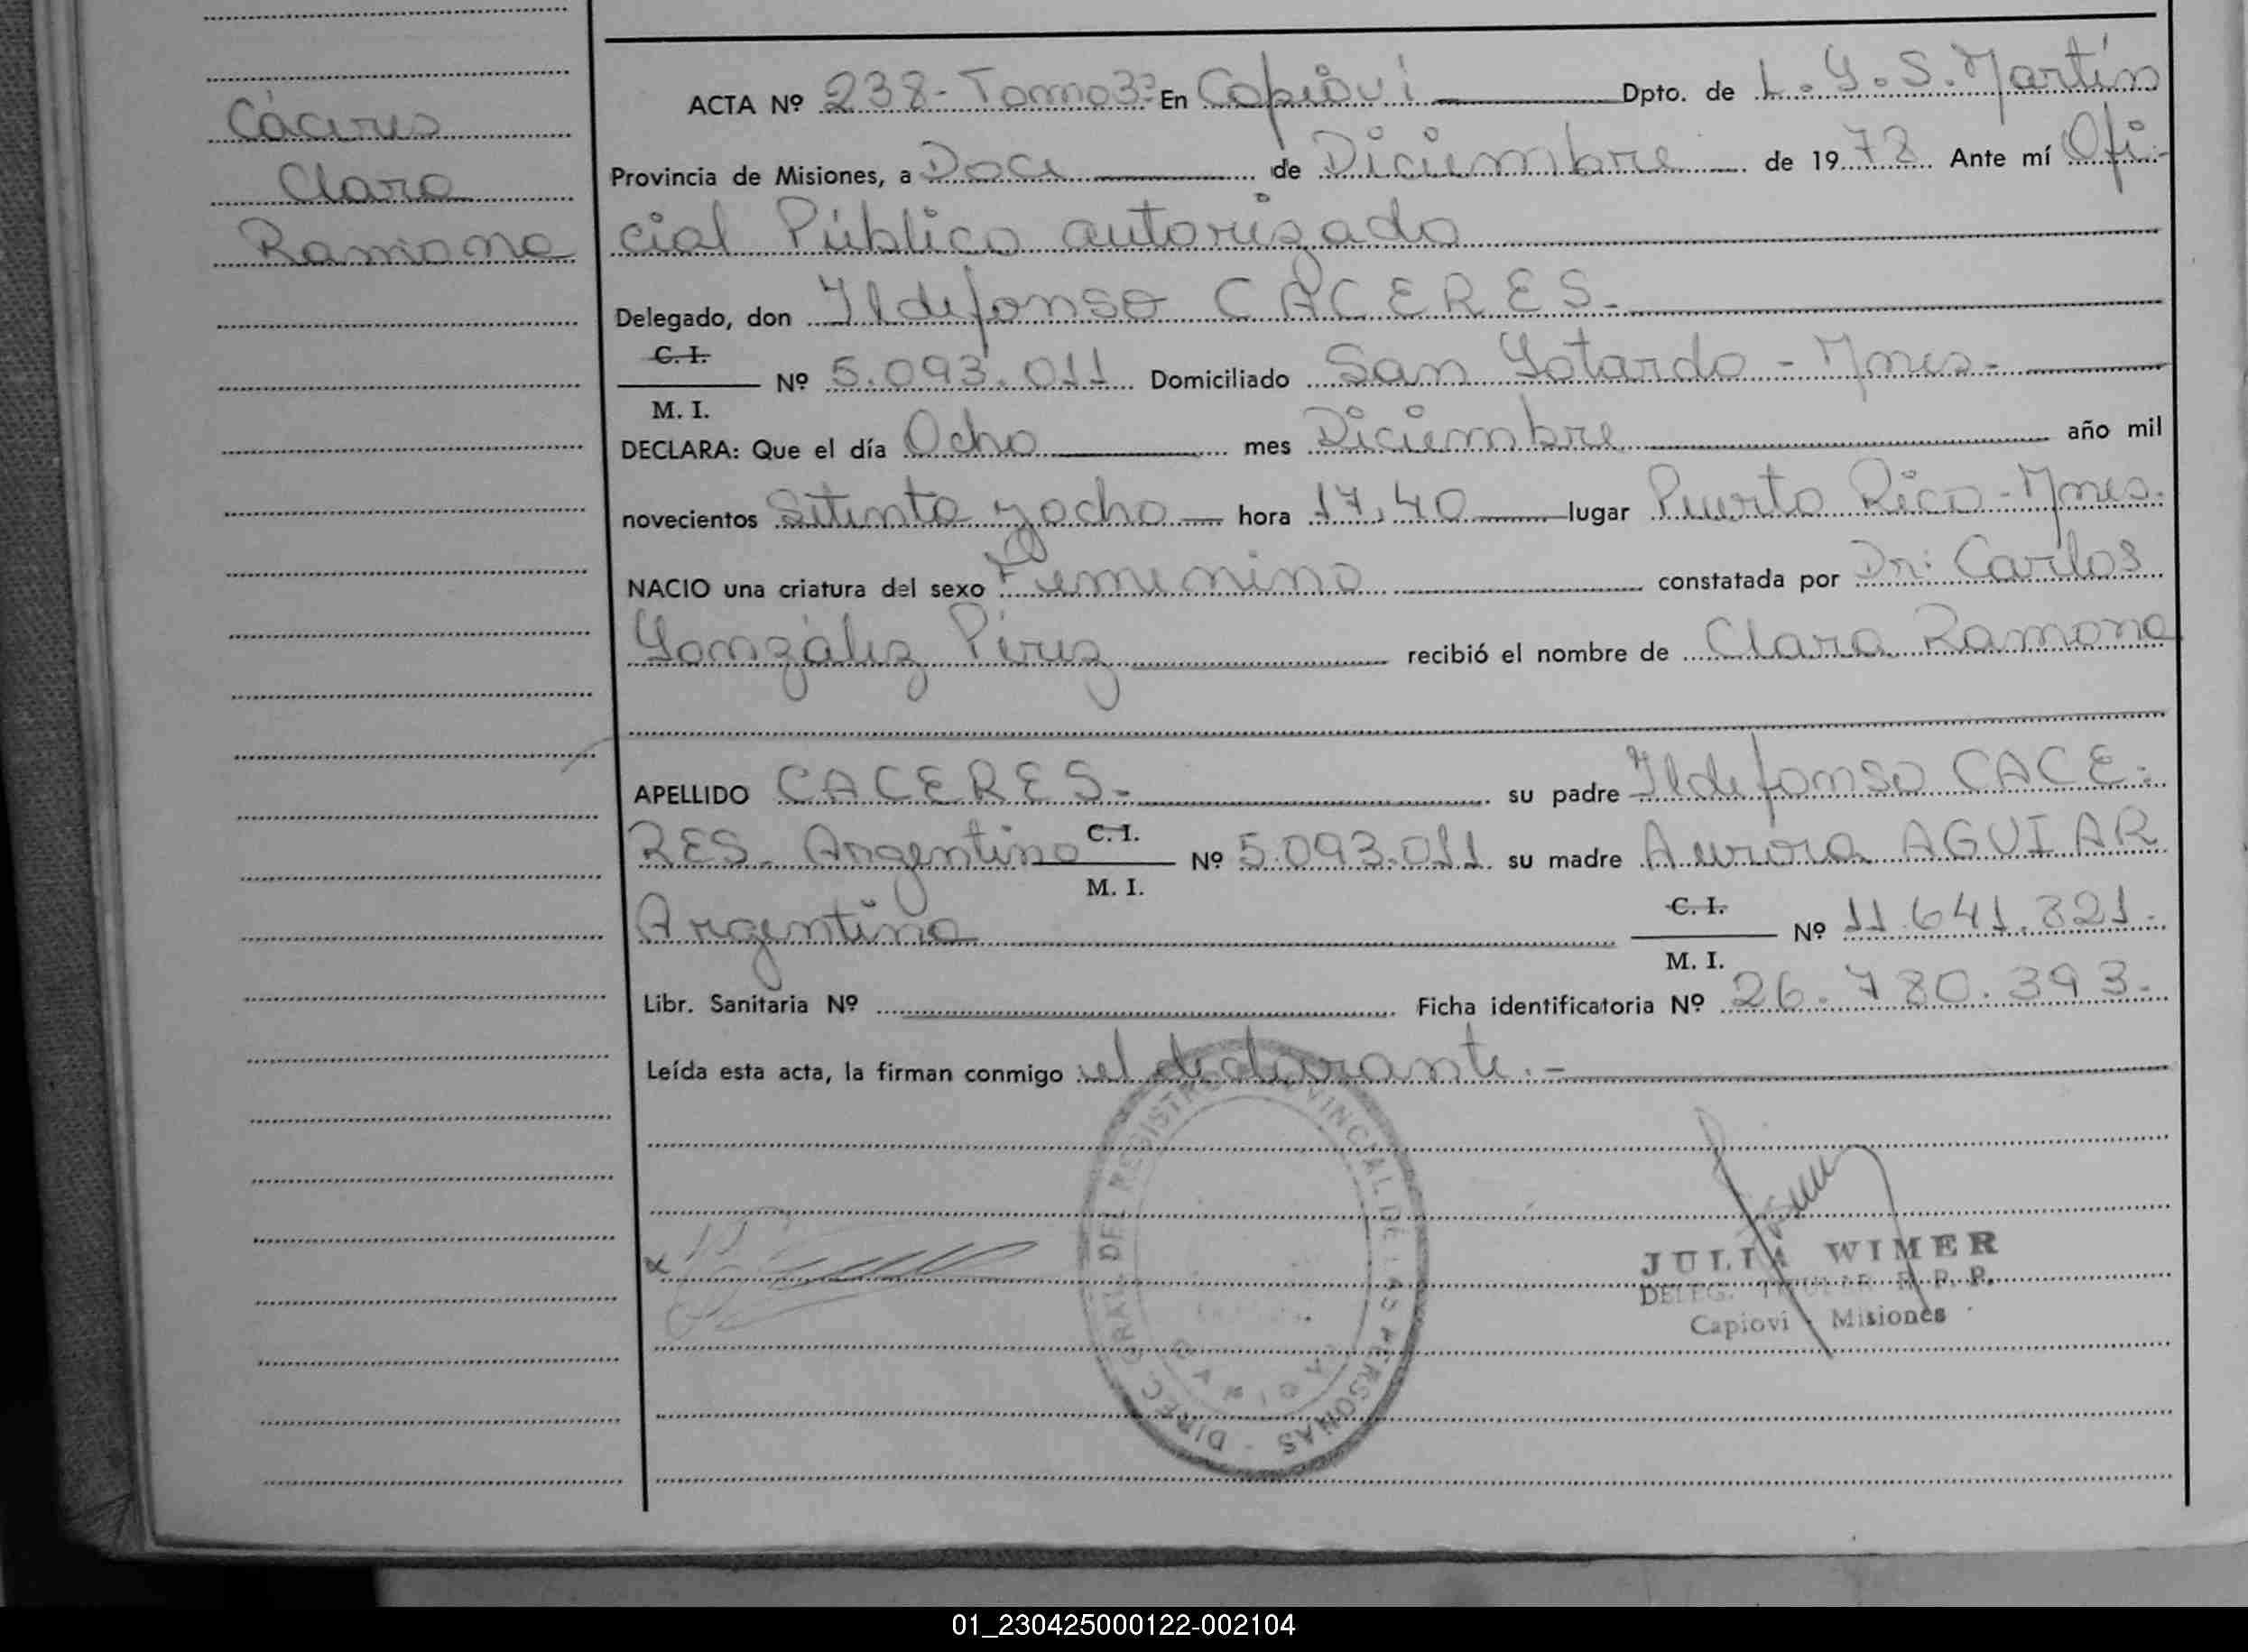 Cáceres
Clara
Ramona
ACTA Nº 238 - Tomo 3º En Capioví Dpto. de L. G. S. Martín
Provincia de Misiones, a Doce de Diciembre de 1978 Ante mí Ofi-
cial Público autorizado
Delegado, don Ildefonso CACERES.-
C. I.
Nº 5.093.011 Domiciliado San Gotardo - Mnes-
M. I.
DECLARA: Que el día Ocho mes Diciembre año mil
novecientos Setenta y ocho hora 17,40 lugar Puerto Rico - Mnes.
NACIO una criatura del sexo Femenino constatada por Dr: Carlos
González Pérez recibió el nombre de Clara Ramona
APELLIDO CACERES.- su padre Ildefonso CACE-
RES. Argentino C. I. Nº 5.093.011 su madre Aurora AGUIAR
M. I.
Argentina C. I. Nº 11.641.821.
M. I.
Libr. Sanitaria Nº Ficha identificatoria Nº 26.780.393.-
Leída esta acta, la firman conmigo el declarante.-
DIREC. GRAL. DEL REGISTRO PROVINCIAL DE LAS PERSONAS
JULIA WIMER
DELEG. TITULAR R. P. P.
Capiovi - Misiones
01_230425000122-002104